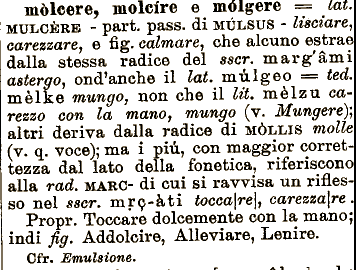 mòlcere, molcíre e mólgere = lat.
MULCÈRE - part. pass. di MÚLSUS - lisciare,
carezzare, e fig. calmare, che alcuno estrae
dalla stessa radice del sscr. marg'âmi
astergo, ond'anche il lat. múlgeo = ted.
mèlke mungo, non che il lit. mèlzu ca-
rezzo con la mano, mungo (v. Mungere);
altri deriva dalla radice di MÒLLIS molle
(v. q. voce); ma i piú, con maggior corret-
tezza dal lato della fonetica, riferiscono
alla rad. MARC- di cui si ravvisa un rifles-
so nel sscr. mṛç-àti tocca[re], carezza[re.
Propr. Toccare dolcemente con la mano;
indi fig. Addolcire, Alleviare, Lenire.
Cfr. Emulsione.